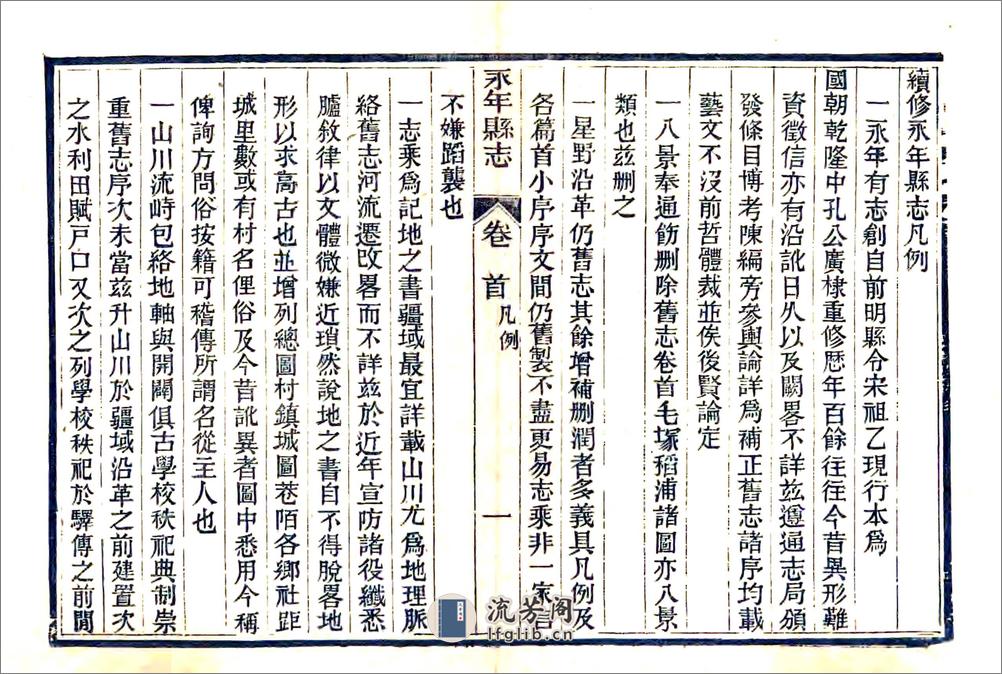 續修永年縣志凡例
一永年有志創自前明縣令宋祖乙現行本爲
國朝乾隆中孔公廣棣重修歴年百餘往往今昔異形難
資徵信亦有沿訛日久以及闕畧不詳兹遵通志局頒
發條目博考陳編旁參輿論詳爲補正舊志諸序均載
藝文不沒前哲體裁並俟後賢論定
一八景奉通飭删除舊志卷首毛塚稻浦諸圖亦八景
類也兹删之
一星野沿革仍舊志其餘增補删潤者多義具凡例及
各篇首小序序文間仍舊製不盡更易志乘非一家言
永年縣志
卷首
凡例
一
不嫌蹈襲也
一志乘爲記地之書疆域最宜詳載山川尤爲地理脈
絡舊志河流遷改畧而不詳兹於近年宣防諸役纖悉
臚敘律以文體微嫌近瑣然說地之書自不得脫畧地
形以求高古也並增列總圖村鎮城圖巷陌各鄉社距
城里數或有村名俚俗及今昔訛異者圖中悉用今稱
俾詢方問俗按籍可稽傳所謂名從主人也
一山川流峙包絡地軸與開闢俱古學校秩祀典制崇
重舊志序次未當兹升山川於疆域沿革之前建置次
之水利田賦戸口又次之列學校秩祀於驛傳之前間
流芳阁
lfglib.cn